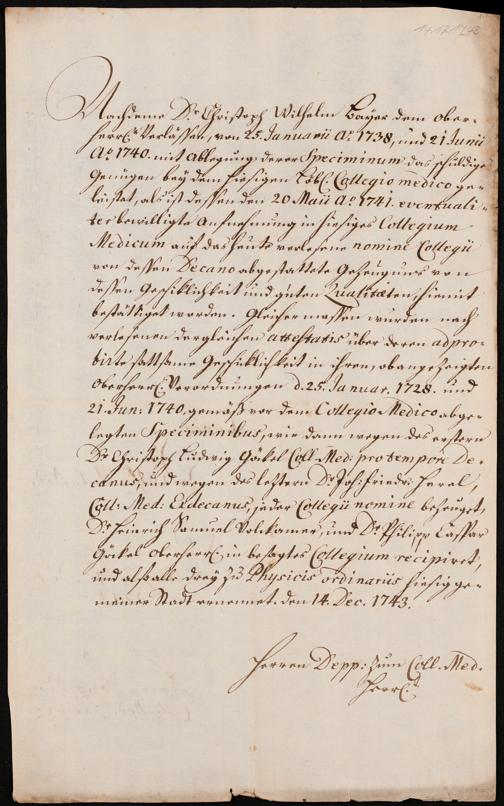 14.12.1743
Nachdeme Dr. Christoph Wilhelm Bayer dem ober-
herrl. Verlässen, von 25. Januarii Ao. 1738, und 21 Junii
Ao. 1740. mit Ablegung derer Speciminum das schuldige
Genügen bey dem hiesigen Löbl. Collegio medico ge-
leistet, als ist dessen den 20 Maii Ao. 1741. eventuali-
ter bewilligte Aufnehmung in hiesiges Collegium
Medicum auf das heute verlesene nomine Collegii
von dessen Decano abgestattete Gezeugnus von
dessen Geschiklichkeit und guten Qualitæten, hiemit
bestättiget worden. Gleicher massen wurden nach
verlesenen dergleichen attestatis über deren adpro-
birte sattsame Geschiklichkeit in ihren, ob angezeigten
Oberherrl. Verordnungen d. 25. Januar. 1728. und
21. Jun: 1740. gemäß vor dem Collegio Medico abge-
legten Speciminibus, wie dann wegen des erstern
Dr. Christoph Ludwig Göckel Coll: Med: pro tempore De-
canus, und wegen des letztern Dr. Joh: Friedr: Herel,
Coll: Med: Exdecanus, jeder Collegii nomine bezeuget,
Dr. Heinrich Samuel Volckamer, und Dr. Philipp Caspar
Göckel Oberherrl. in besagtes Collegium recipiret,
und also alle drey zu Physicis ordinariis hiesig ge-
meiner Stadt ernennet. den 14. Dec. 1743.
Herren Depp: zum Coll. Med.
Herrl.